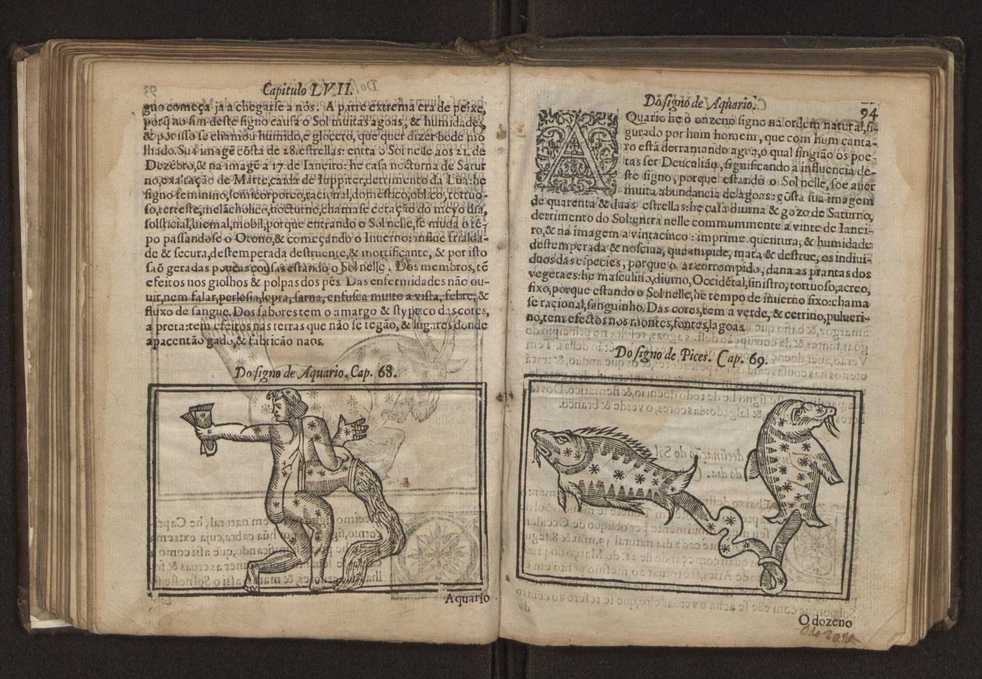 Capitulo LVII.
gno começa ja a chegarse a nós. A parte extrema era de peixe,
porq̃ ao fim deste signo causa o Sol muitas agoas, & humidades
& por isso se chamou humido, e glocero, que quer dizer bode mo
lhado. Sua imagẽ cõsta de 28. estrellas: entra o Sol nelle aos 21. de
Dezẽbro, & na imagẽ a 17 de Ianeiro: he casa nocturna de Satur
no, exaltação de Marte, caida de Iuppiter, detrimento da Lũa: he
signo feminino, semicorporeo, racional, domestico, oblico, tortuo-
so, terreste, melãcholico, nocturno, chamase estação do meyo dia,
solsticial, hiemal, mobil, porque entrando o Sol nelle, se muda o tẽ-
po passandose o Otono, & começando o Inuerno: influe frialda-
de & secura, destemperada destruente, & mortificante, & por isso
saõ geradas poucas cousas estando o Sol nelle. Dos membros, tẽ
efeitos nos giolhos & polpas dos pès. Das enfermidades não ou-
uir, nem falar, perlesia, lepra, sarna, enfusca muito a vista, febre, &
fluxo de sangue. Dos sabores tem o amargo & stypico das cores,
a preta: tem efeitos nas terras que não se regão, & lugares donde
apacentão gado, & fabricão naos.
Do signo de Aquario. Cap. 68.
Aquario
Do signo de Aquario.
94
AQuario he o onzeno signo na ordem natural, fi-
gurado por hum homem, que com hum canta-
ro está derramando agua, o qual fingirão os poe-
tas ser Deucalião, significando a influencia de-
ste signo, porque estando o Sol nelle, soe auer
muita abundancia de agoas: cõsta sua imagem
de quarenta & duas estrellas: he casa diurna & gozo de Saturno,
detrimento do Sol: entra nelle communmente a vinte de Ianei-
ro, & na imagem a vintacinco: imprime quentura, & humidade
destemperada & nosciua, que rompe, mata & destrue, os indiui-
duos das especies, porque o ar corrompido, dana as prantas dos
vegetaes: he masculino, diurno, Occidẽtal, sinistro, tortuoso, aereo,
fixo, porque estando o Sol nelle, he tempo de inuerno fixo: chama
se racional, sanguinho. Das cores, tem a verde, & cetrino, pulueri-
no, tem efectos nos montes, fontes, lagoas.
Do signo de Pices. Cap. 69.
O dozeno